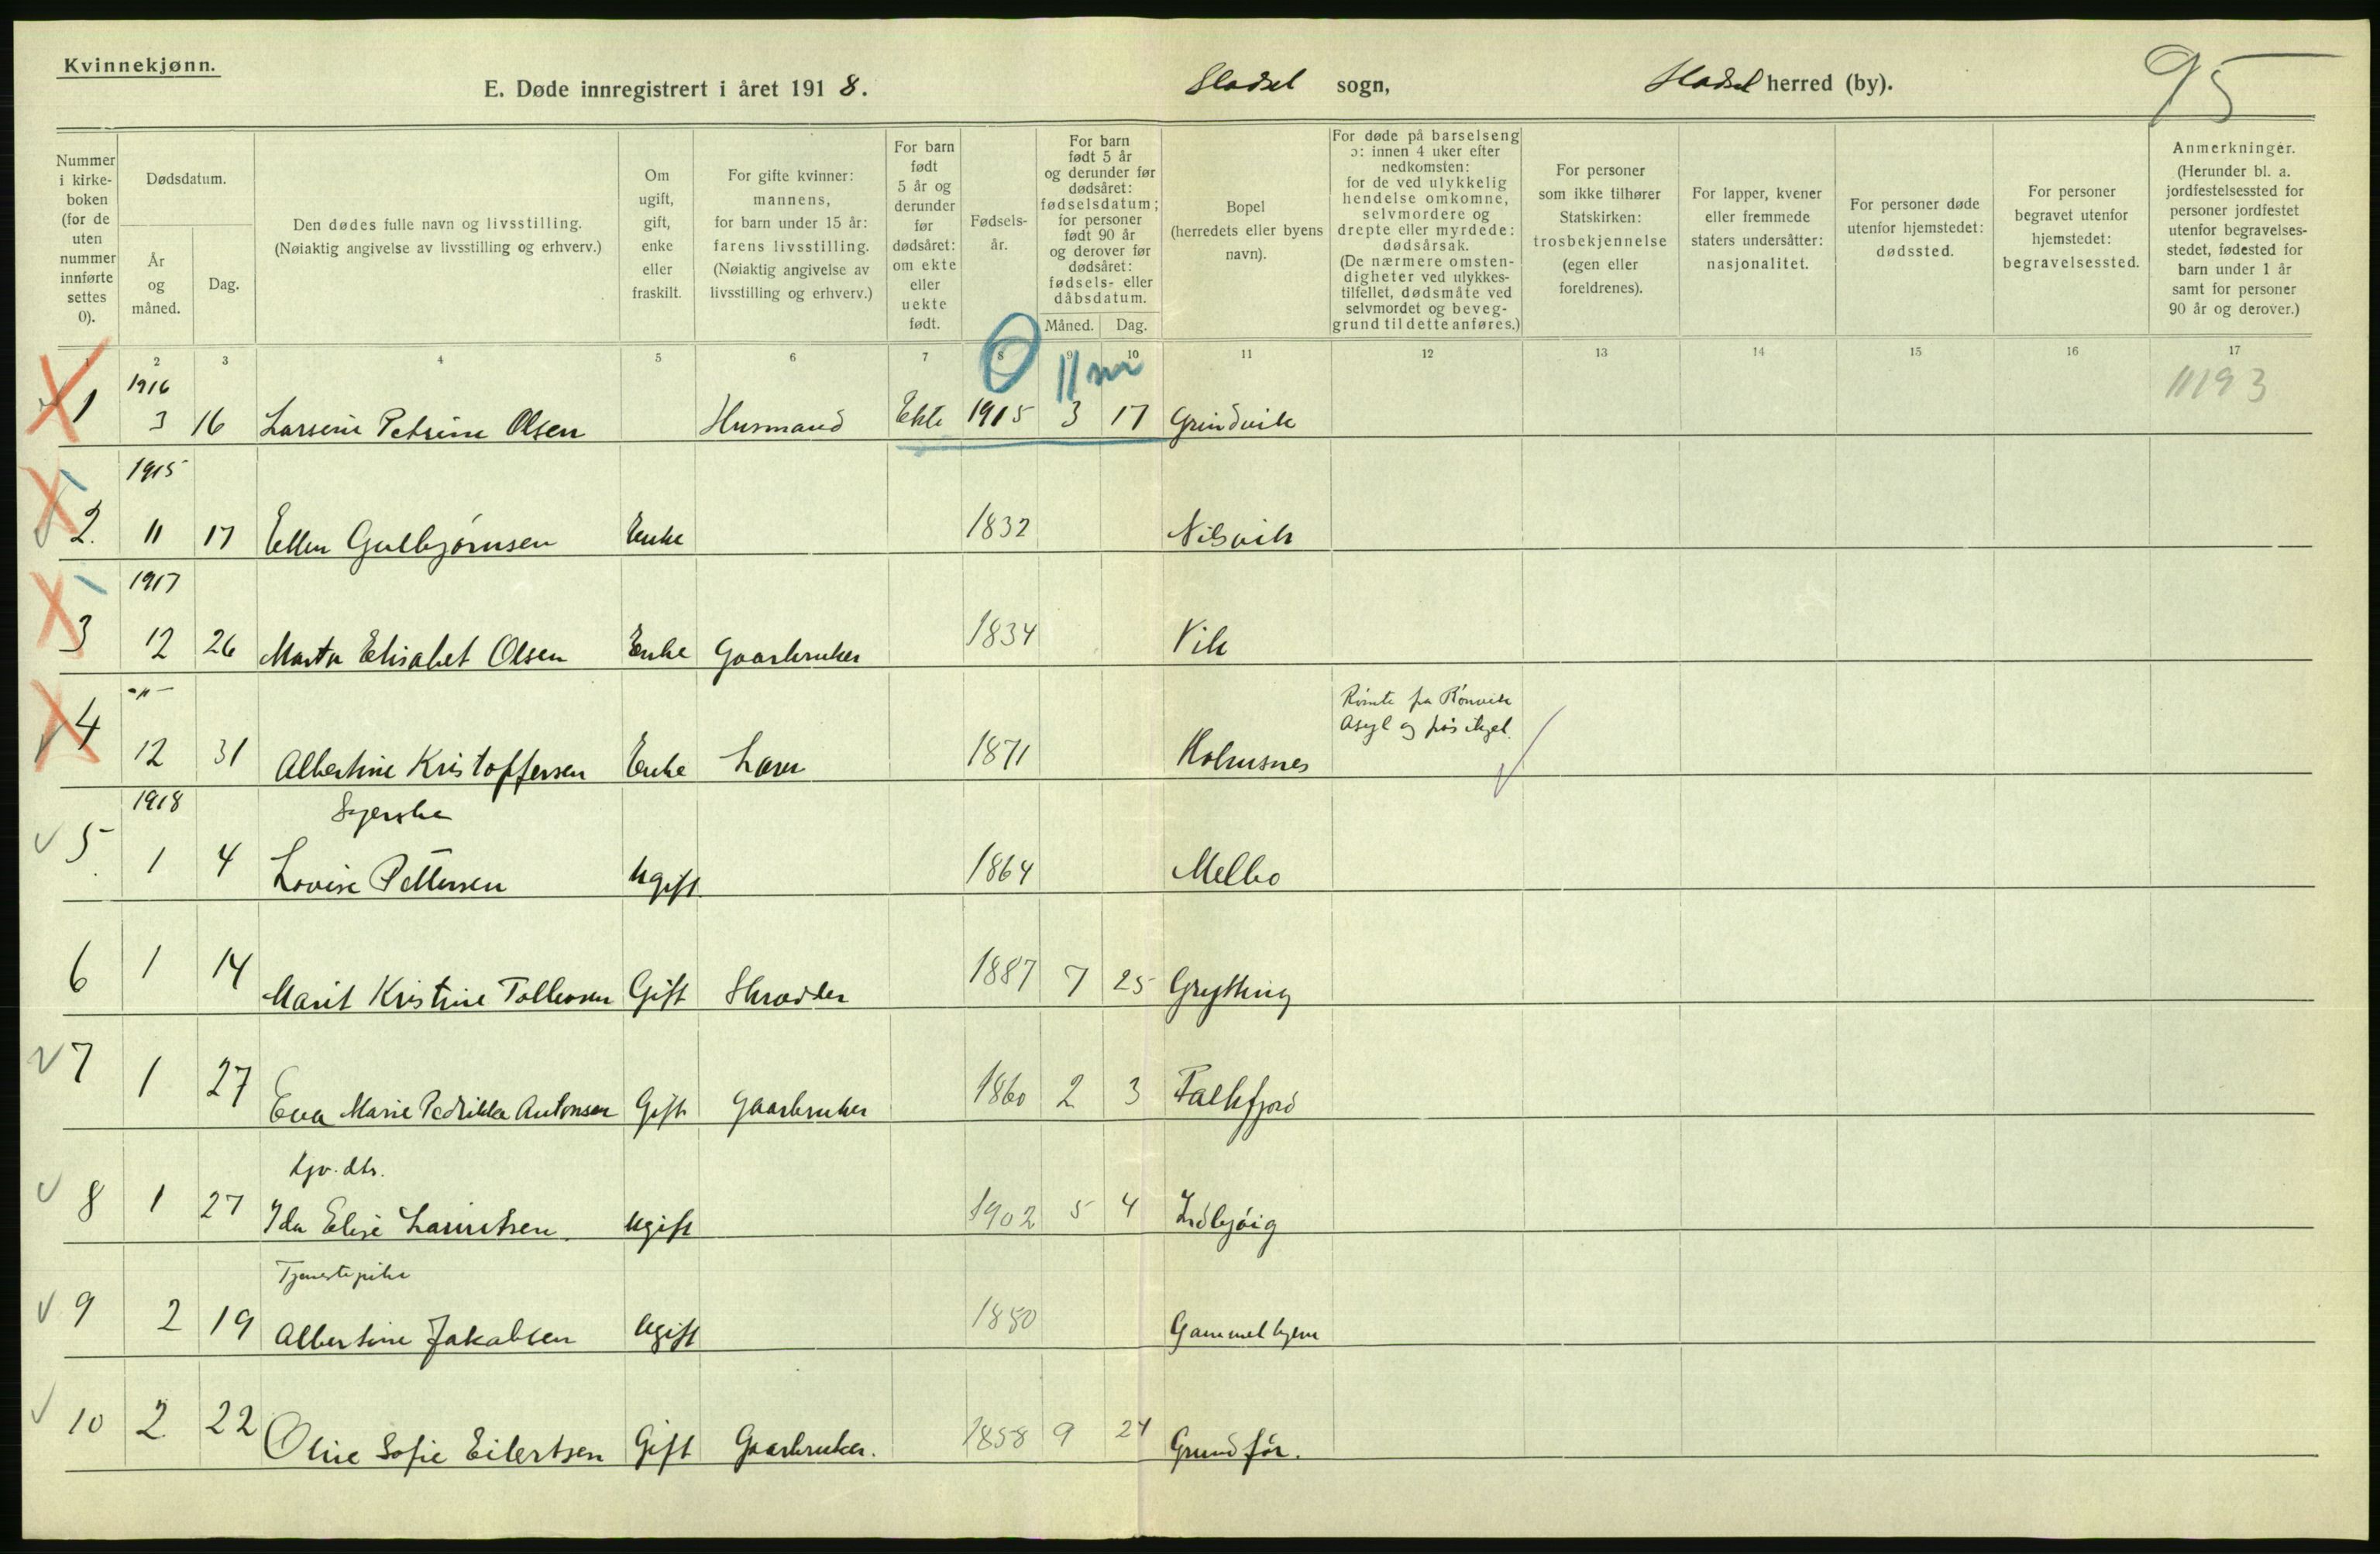 Kvinnekjønn.
E. Døde innregistrert i året 1918. Hadsel sogn, Hadsel herred (by). 95
Nummer i kirkeboken (for de uten nummer innførte settes 0).
Dødsdatum.
År og måned.
Dag.
Den dødes fulle navn og livsstilling.
(Nøiaktig angivelse av livsstilling og erhverv.)
Om ugift, gift, enke eller fraskilt.
For gifte kvinner: mannens, for barn under 15 år: farens livsstilling.
(Nøiaktig angivelse av livsstilling og erhverv.)
For barn født 5 år og derunder før dødsåret: om ekte eller uekte født.
Fødsels-år.
For barn født 5 år og derunder før dødsåret: fødselsdatum; for personer født 90 år og derover før dødsåret: fødsels- eller dåbsdatum.
Måned. Dag.
Bopel (herredets eller byens navn).
For døde på barselseng ɔ: innen 4 uker efter nedkomsten: for de ved ulykkelig hendelse omkomne, selvmordere og drepte eller myrdede: dødsårsak.
(De nærmere omsten-digheter ved ulykkes-tilfellet, dødsmåte ved selvmordet og beveg-grund til dette anføres.)
For personer som ikke tilhører Statskirken: trosbekjennelse (egen eller foreldrenes).
For lapper, kvener eller fremmede staters undersåtter: nasjonalitet.
For personer døde utenfor hjemstedet: dødssted.
For personer begravet utenfor hjemstedet: begravelsessted.
Anmerkninger.
(Herunder bl. a. jordfestelsessted for personer jordfestet utenfor begravelses-stedet, fødested for barn under 1 år samt for personer 90 år og derover.)
1 2 3 4 5 6 7 8 9 10 11 12 13 14 15 16 17
0 11 mr
1916
1 3 16 Larsine Petrine Olsen Husmand Ekte 1915 3 17 Grindvik 11193
1915
2. 11 17 Ellen Gulbjørnsen Enke 1832 Nilsvik
1917
3 12 26 Marta Elisabet Olsen Enke Gaarbruker 1834 Vik
-"-
Rømte fra Rønvik
Asyl og frøs ihjel.
4 12 31 Albertine Kristoffersen Enke Lærer 1871 Holmsnes
1918
Syerske
5. 1 4 Lovise Pettersen Ugift 1864 Melbo
6 1 14 Marit Kristine Tollevsen Gift Skrædder 1887 7 25 Grytting
7 1 27 Eva Marie Pedrikke Antonsen Gift Gaarbruker 1860 2 3 Falkfjord
Gjv. dtr.
8 1 27 Ida Elise Lauritsen. Ugift 1902 5 4
Tjenestepike
9 2 19 Albertine Jakobsen Ugift 1850 Gammelhjem
10 2. 22 Oline Sofie Eilertsen Gift Gaarbruker. 1858 9 24 Grundför.